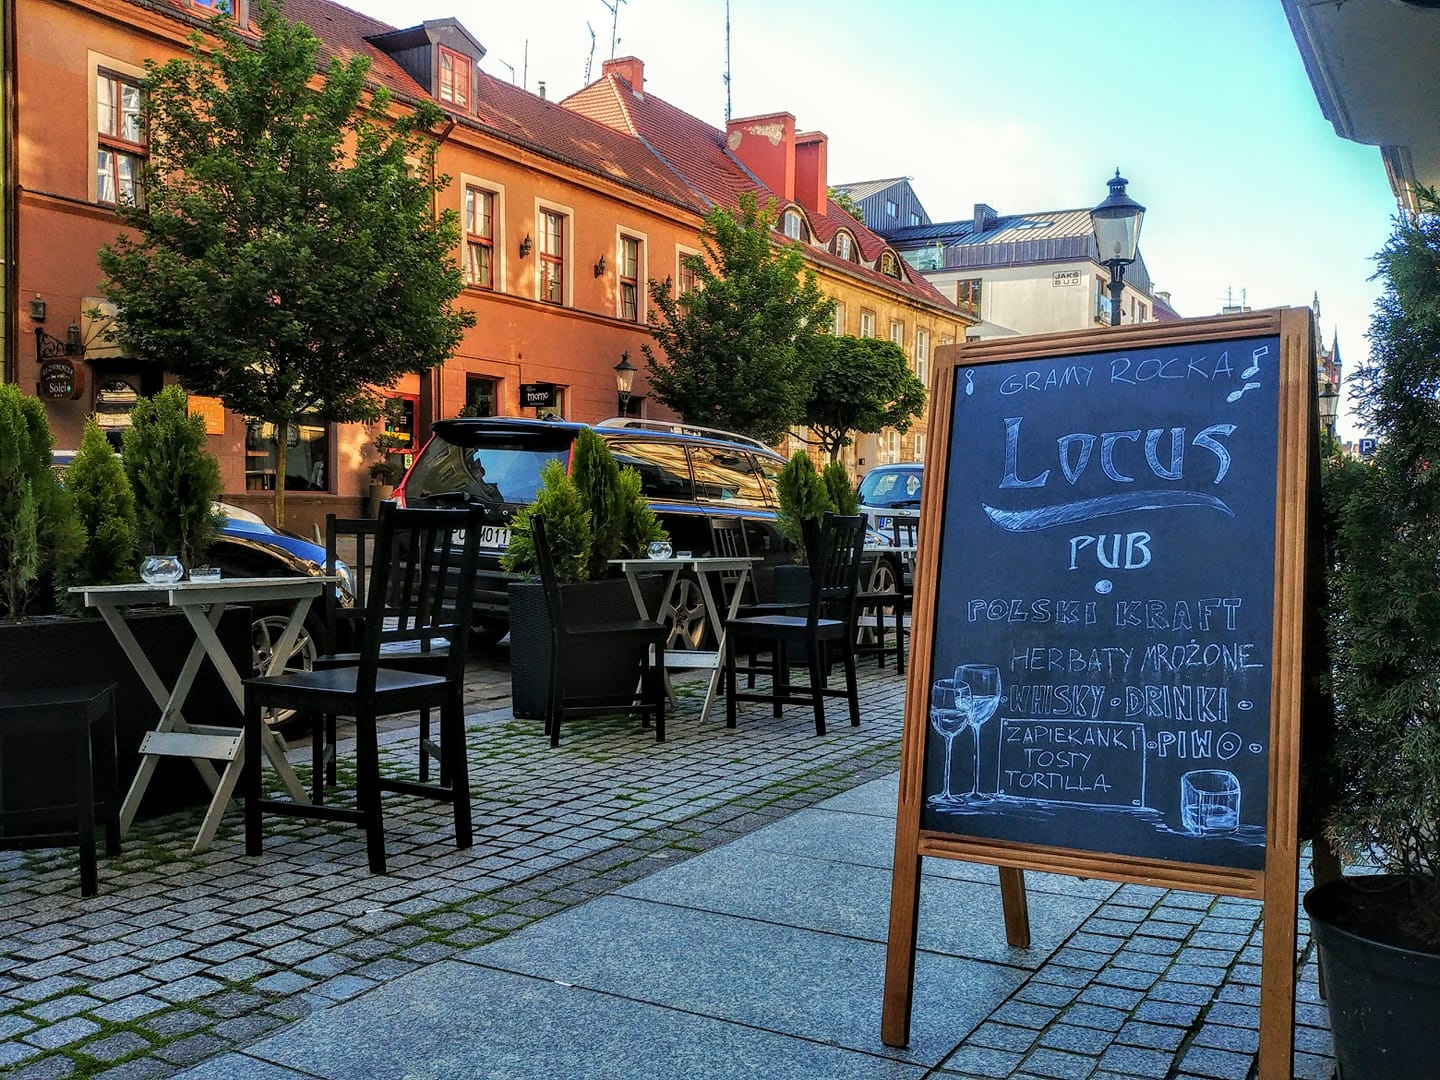 GRAMY ROCKA
LOCUS
PUB
POLSKI KRAFT
HERBATY MROŻONE
WHISKY • DRINKI •
ZAPIEKANKI
• PIWO •
TOSTY
TORTILLA
JAKŚ
BUD
momo
Sole